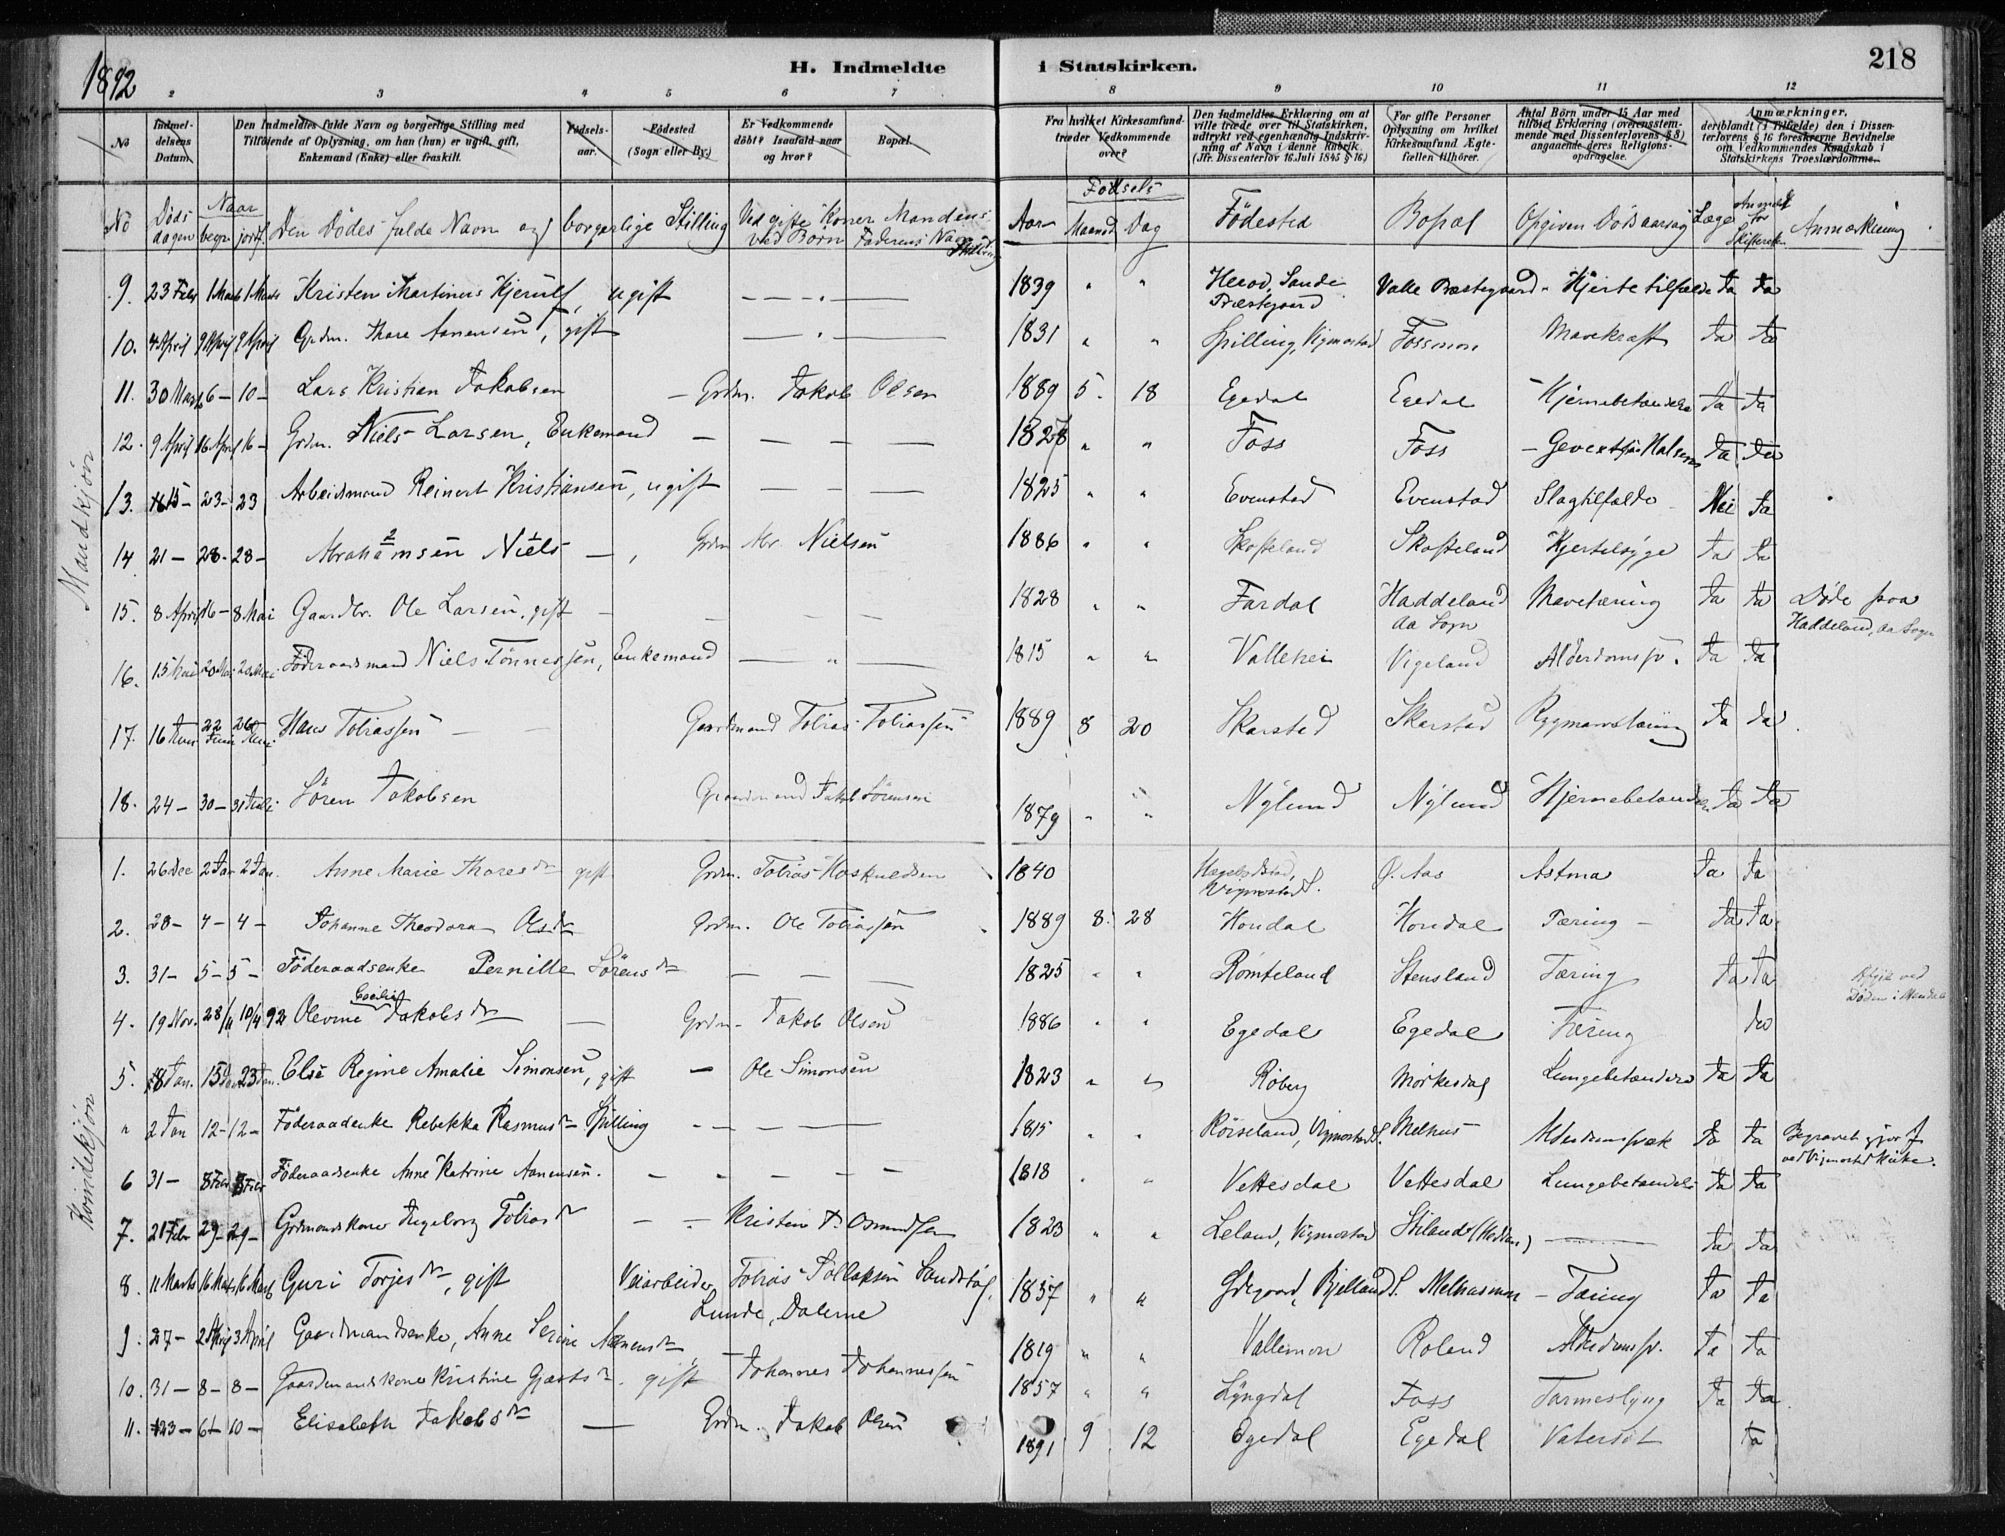 1892
H. Indmeldte i Statskirken.
218
2 3 4 5 6 7 8 9 10 11 12
No
Indmel-delsens Datum.
Den Indmeldtes fulde Navn og borgerlige Stilling med Tilføiende af Oplysning, om han (hun) er ugift, gift, Enkemand (Enke) eller fraskilt.
Fødsels-aar.
Fødested (Sogn eller By.)
Er Vedkommende døbt? Isaafald naar og hvor?
Bopæl.
Fra hvilket Kirkesamfund træder Vedkommende over?
Den Indmeldtes Erklæring om at ville træde over til Statskirken, udtrykt ved egenhændig Indskrivning af Navn i denne Rubrik. (Jfr. Dissenterlov 16 Juli 1845 § 16)
For gifte Personer Oplysning om hvilket Kirkesamfund Ægtefællen tilhører.
Antal Børn under 15 Aar med tilføiet Erklæring (overensstemmende med Dissenterlovens § 8) angaaende deres Religionsopdragelse.
Anmærkninger, deriblandt (i Tilfælde) den i Dissenterlovens § 15 foreskrevne Bevidnelse om Vedkommendes Kundskab i Statskirkens Troeslærdomme.
No Døds dagen Naar begr. jordf. Den Dødes fulde Navn og borgerlige Stilling Ved gifte Koner Mandens ved Børn Faderens Navn Fødsels Aar Maaned Dag Fødested Bopæl Opgiven Dødsaarsag Læge Anmeldt for Skifteretten Anmærkning
Mandkjøn
9. 23 Febr 1 Marts 1 Marts Kristen Martinius Kjerulf, ugift 1839 " " Herod, Sande Præstegaard Valle Præstegaard Hjertetilfælde Ja Ja
10. 4 April 9 April 9 April Grdm. Thore Aanensen, gift 1831 " " Spilling, Vigmostad Fossmon Mavekræft Ja Ja
11. 30 Marts 6 - 10 - Lars Kristian Jakobsen - Grdm. Jakob Olsen 1889 5. 18 Egedal Egedal Hjernebetændelse Ja Ja
12. 9 April 16 April 16 - Grdm. Niels Larsen, Enkemand 1828 " " Foss Foss - Ja Ja
13. 15 - 23 - 23 Arbeidsmand Reinert Kristiansen, ugift 1825 " " Evenstad Evenstad Slagtilfælde Nei Ja
14 21 - 28 - 28 - Abrahamsen Niels Grdm Abr. Nielsen 1886 " " Skofteland Skofteland Hjertesyge Ja Ja
15. 8 April 16 - 8 Mai Gaardbr. Ole Larsen, gift 1828 " " Fardal Haddeland aa Sogn Mavetæring Ja Ja Døde paa Haddeland, aa Sogn
16. 15 Mai 20 Mai 20 Mai Føderaadsmand Niels Tønnessen, Enkemand 1815 " " Vallehei Vigeland Alderdomssv. Ja Ja
17. 16 Juni 22 Juni 26 Juni Hans Tobiassen Gaardmand Tobias Tobiassen 1889 8 20 Skarstad Skarstad Rygmarvstæring Ja Ja
18. 24 - 30 - 31 Juli Søren Jakobsen Gaardmand Jakob Sørensen 1879 " " Nylund Nylund Hjernebetændelse Ja Ja
Kvindekjøn
1. 26 Dec 2 Jan 2 Jan. Anne Marie Thoresdr gift Grdm. Tobias Hoskuldsen 1840 Hægebostad, Vigmostad S. Ø. Aas Astma Ja Ja
2. 28 - 4 - 4 - Johanne Theodora Olsdr Grdm. Ole Tobiassen 1889 8. 28 Hondal Hondal Tæring - Ja Ja
3. 31 - 5 - 5 - Føderaadsenke Pernille Sørensdr 1825 " " Rømteland Stensland Tæring Ja Ja
4. 19 Nov. 28/11 10/4 92 Olevine Cecilie Jakobsdr Grdm - Jakob Olsen 1886 " " Egedal Egedal Tæring Ja Afgik ved Døden i Mandal
5. 8 Jan. 15 Jan 23 Jan. Else Regine Amalie Simonsen, gift - Ole Simonsen 1823 " " Røberg Mørkesdal Lungebetændelse Ja Ja
" 2 Jan 12 - 12 - Føderaadsenke Rebekka Rasmusdr Spilling 1815 " " Rørseland, Vigmostad S. Melhus Alderdomssvæk Ja Ja Begravet gjort ved Vigmostad Kirke.
6 31 - 8 Febr 8 Febr Føderaadsenke Anne Katrine Aanensen. 1818 " " Vettesdal Vettesdal Lungebetændelse Ja Ja
7. 21 Febr 29 - 29 - Grdmandskone Ingeborg Tobiasdr Kristen T. Osmundsen 1823 " " Leland, Vigmostad Stiland Ja Ja
8. 11 Marts 16 Marts 16 Marts Guri Torjesdr, gift Veiarbeider Tobias Tollaksen Sandstøl, Lunde, Dalerne 1837 " " Ødegaard, Bjelland S. Melhusmon - Tæring Ja Ja
9. 27 - 2 April 3 April Gaardmandsenke, Anne Serine Aanensdr 1819 " " Vallemon Roland Alderdomssv. Ja Ja
10. 31 - 8 - 8 - Gaardmandskone Kristine Gjertsdr. gift Johannes Johannessen 1857 " " Lyngdal Foss Tarmeslyng Ja Ja
11. 23 - 6 - 10 - Elisabeth Jakobsdr Grdm. Jakob Olsen 1891 9 12 Egedal Egedal Vatersot Ja